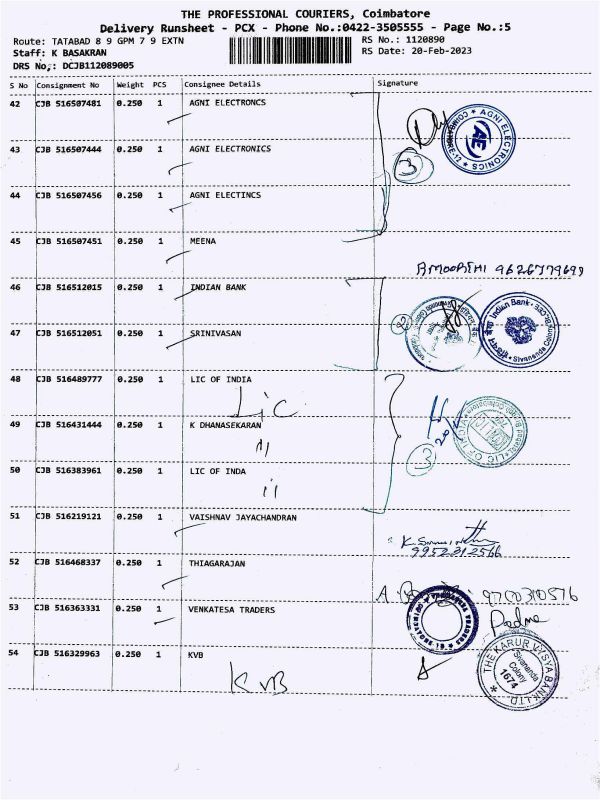 THE PROFESSIONAL COURIERS, Coimbatore
Delivery Runsheet - PCX - Phone No.:0422-3505555 - Page No.:5
Route: TATABAD 8 9 GPM 7 9 EXTN
RS No.: 1120890
Staff: K BASAKRAN
RS Date: 20-Feb-2023
DRS No,: DCJB112089005
S No Consignment No Weight PCS Consignee Details Signature
42 CJB 516507481 0.250 1 AGNI ELECTRONCS
AGNI ELECTRONICS
AE
43 CJB 516507444 0.250 1 AGNI ELECTRONICS
3
44 CJB 516507456 0.250 1 AGNI ELECTINCS
45 CJB 516507451 0.250 1 MEENA
46 CJB 516512015 0.250 1 INDIAN BANK
2
Indian Bank
Sivananda Colony
47 CJB 516512051 0.250 1 SRINIVASAN
48 CJB 516489777 0.250 1 LIC OF INDIA
Lic
49 CJB 516431444 0.250 1 K DHANASEKARAN
LIC OF INDIA
3
50 CJB 516383961 0.250 1 LIC OF INDA
51 CJB 516219121 0.250 1 VAISHNAV JAYACHANDRAN
9952312566
52 CJB 516468337 0.250 1 THIAGARAJAN
53 CJB 516363331 0.250 1 VENKATESA TRADERS
Padma
54 CJB 516329963 0.250 1 KVB
KVB
THE KARUR VYSYA BANK LTD
Sivananda
Colony
1674